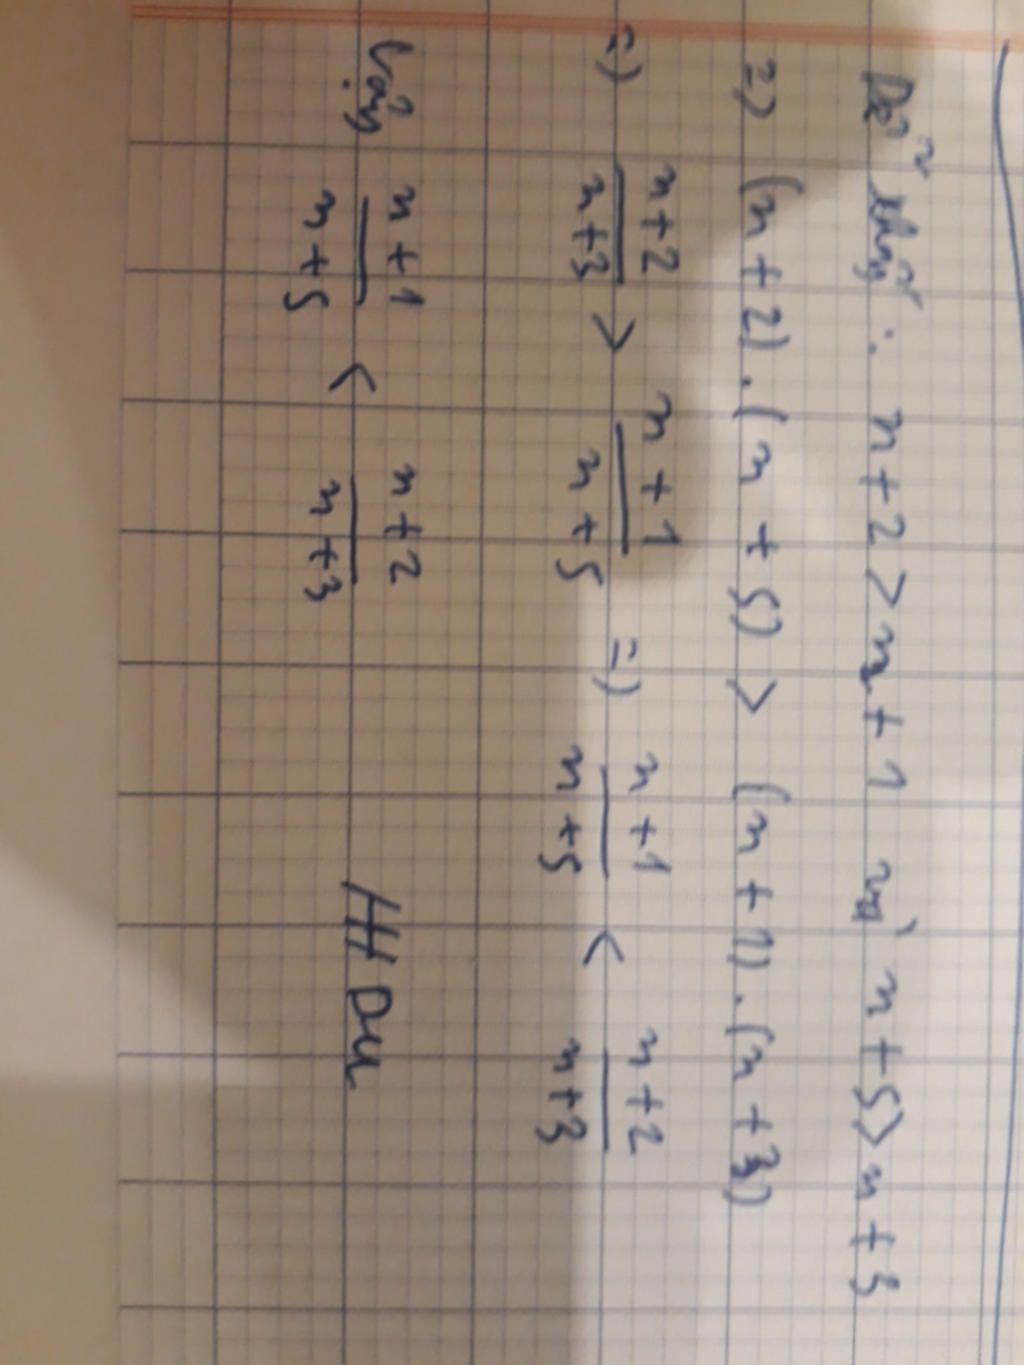 Dễ thấy: n+2 > n+1 và n+5 > n+3
=> (n+2).(n+5) > (n+1).(n+3)
=> n+2/n+3 > n+1/n+5 => n+1/n+5 < n+2/n+3
Vậy n+1/n+5 < n+2/n+3